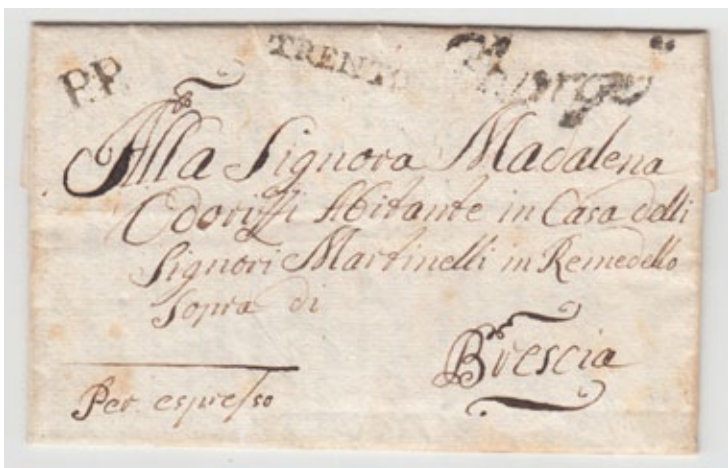 P.P.
TRENTO
Alla Signora Madalena
Odorissi Abitante in Casa delli
Signori Martinelli in Remedello
Sopra di
Brescia
Per espresso